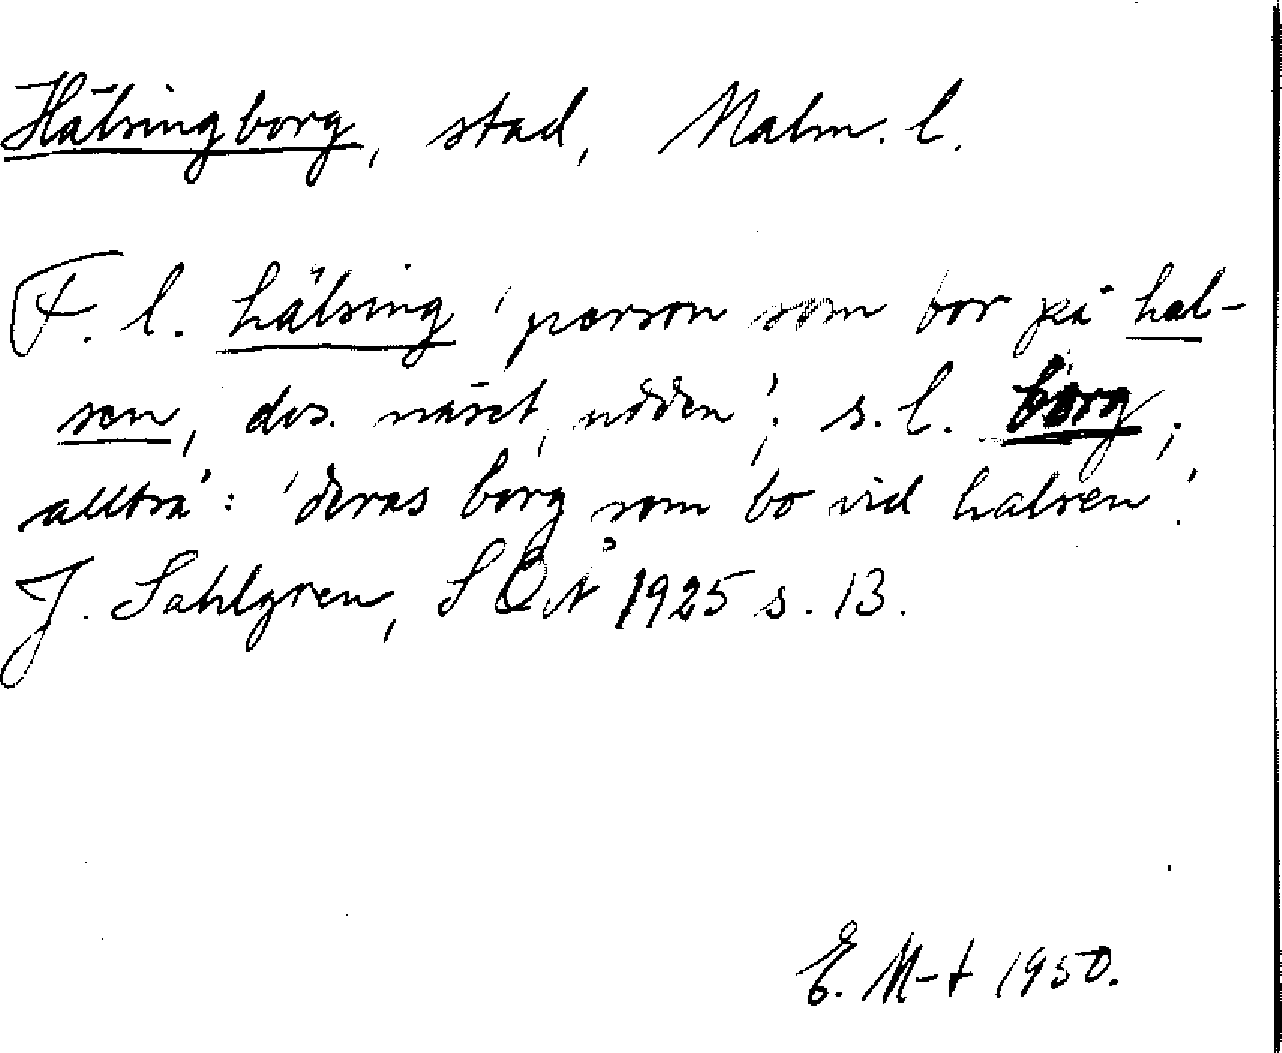 Hälsingborg, stad, Malm. l.
F. l. hälsing 'person som bor på hal-
sen, dvs. näset, udden'; s. l. borg;
alltså: 'deras borg som bo vid halsen'.
J. Sahlgren, SOÅ 1925 s. 13.
E. M-t 1950.